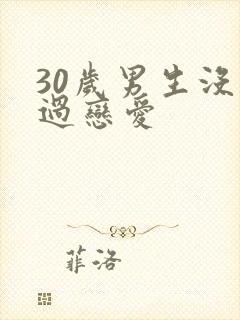 30歲男生沒
過戀愛
菲洛